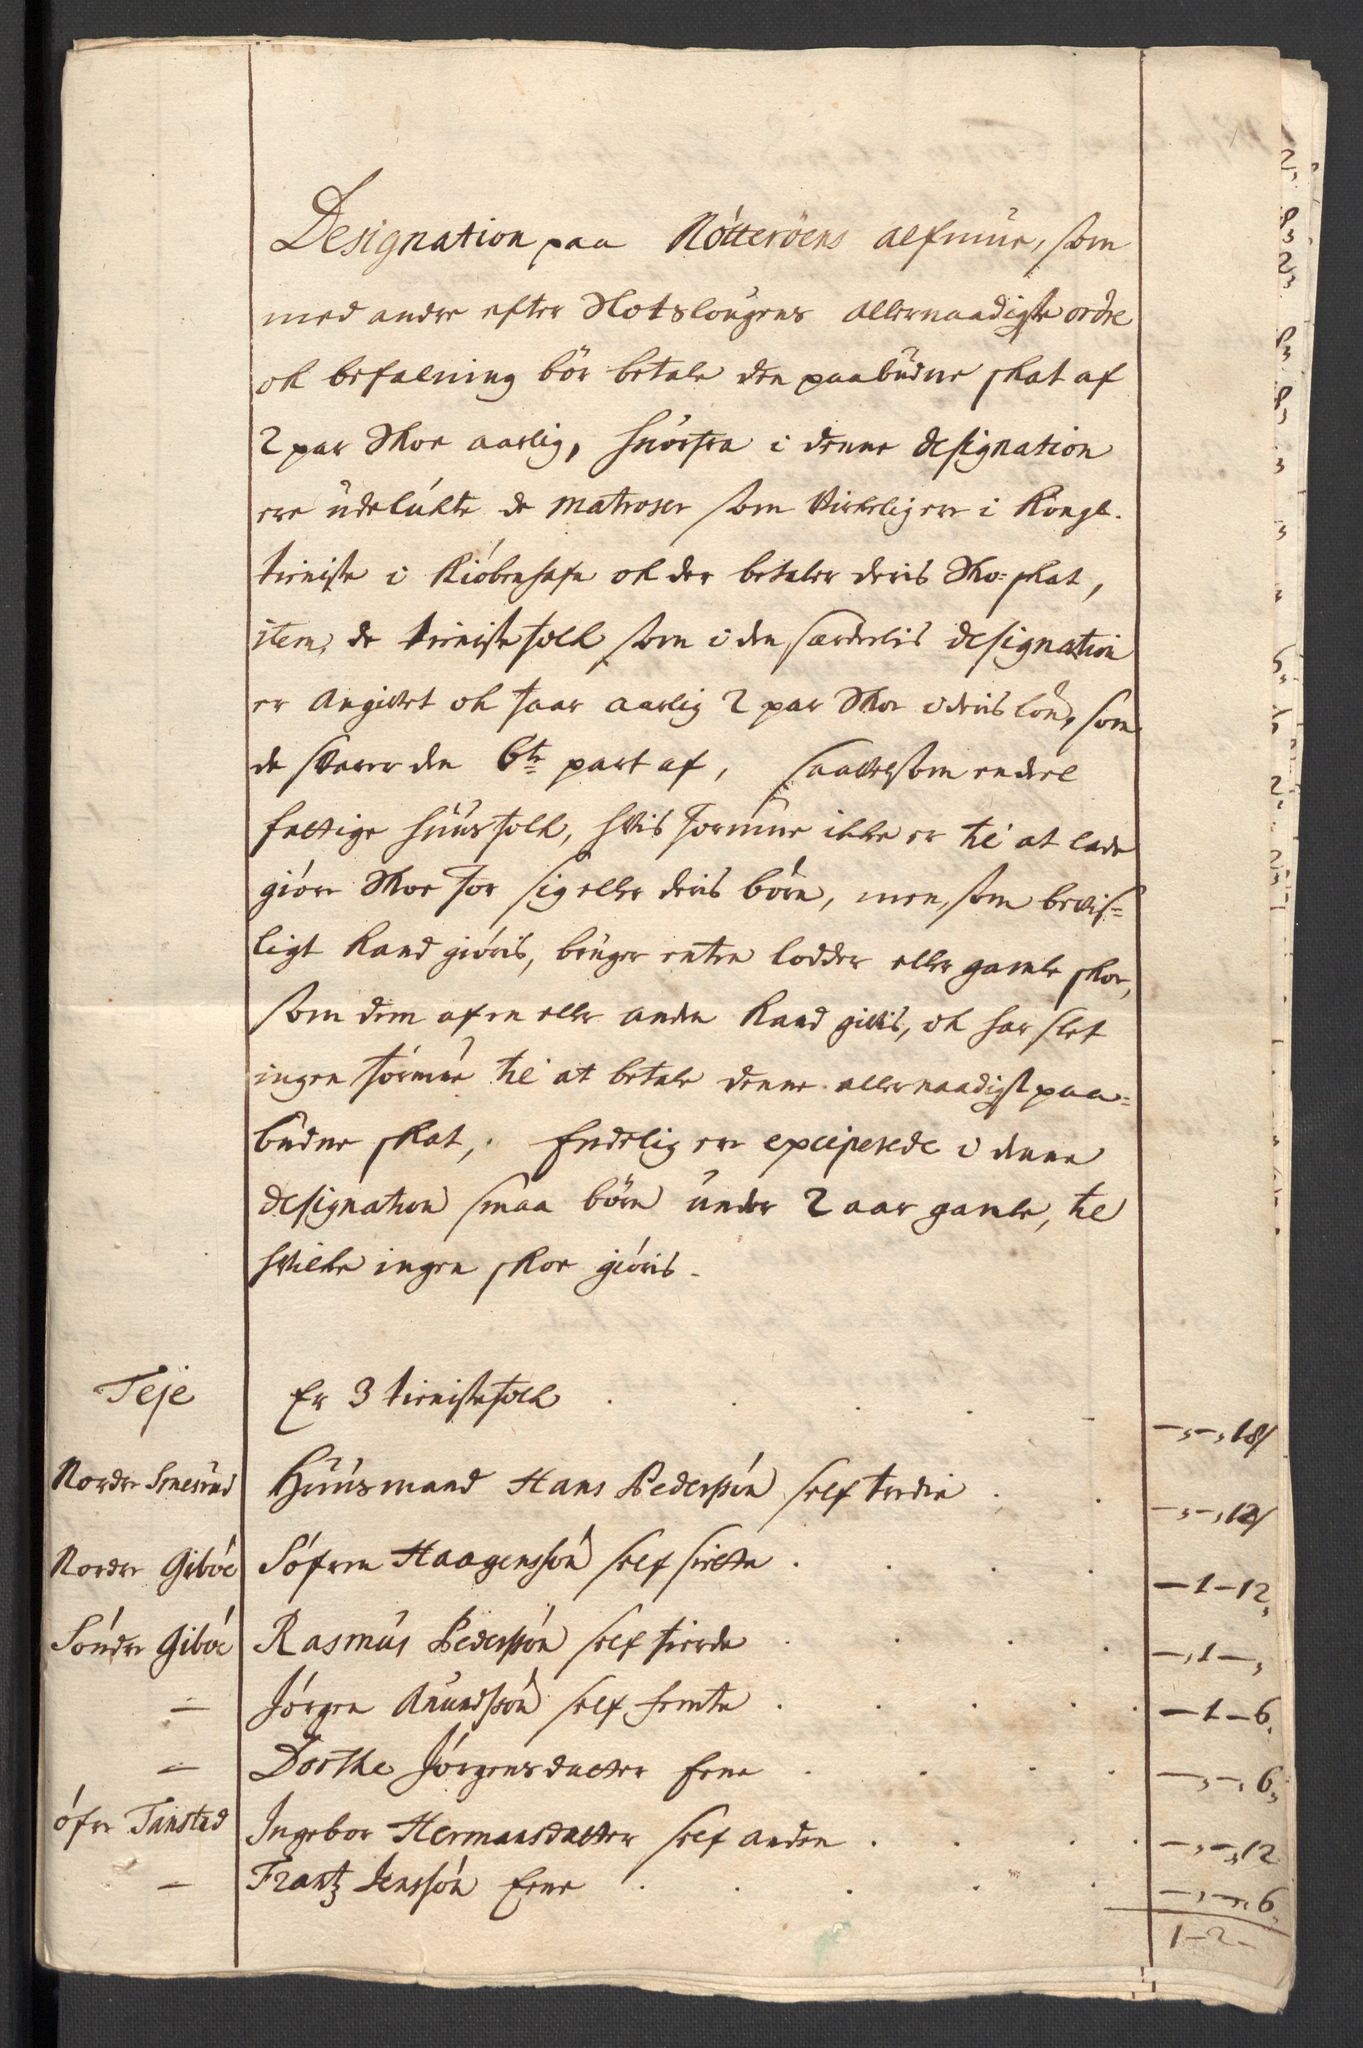 Designation paa Nötteröens alfmüe, som
med andre efter Slotslougens allernaadigste ordre
ok befalning bör betale den paabudne skat af
2 par Skoe aarlig, huorfra i denne designation
ere udelukte de matroser som Virkelig ere i Kongl.
tieniste i Kiöbenhafn ok der betaler deris Sko-skat,
item, de tienistefolk som i den særdelis designation
er Angivet ok faar aarlig 2 par Skoe i deris lön, som
de svarer den 6te part af, saavelsom endeel
fattige huusfolk, hvis formue ikke er til at lade
giöre Skoe for sig eller deris börn, men, som bevis-
ligt Kand giöris, bruger enten lodder eller gamle skoe,
som dem af en eller anden Kand givis, ok har slet
ingen formue til at betale denne allernaadigst paa-
budne skat, Endelig ere exciperede i denne
designation smaa börn under 2 aar gamle, til
hvilke ingen skoe giöris.
Teje Er 3 tienistefolk . . . . -,-,18/
Nordre Smesrud Huusmand Hans Pederssön self tredie . . -,-,12/
Nordre Giböe Söfren Haagenssön self siette . . . -1-12,
Söndre Giböe Rasmus Pederssön self fierde . . . . -,1-,
- Jörgen Anundssön self femte . . . . -1-6,
- Dorthe Jörgensdatter Eene . . . . -,-,6,
öfre Tanstad Ingebor Hermansdatter self anden . . . . -,-,12
- Frantz Jenssön Eene . . . . . -,-,6,
1-2-